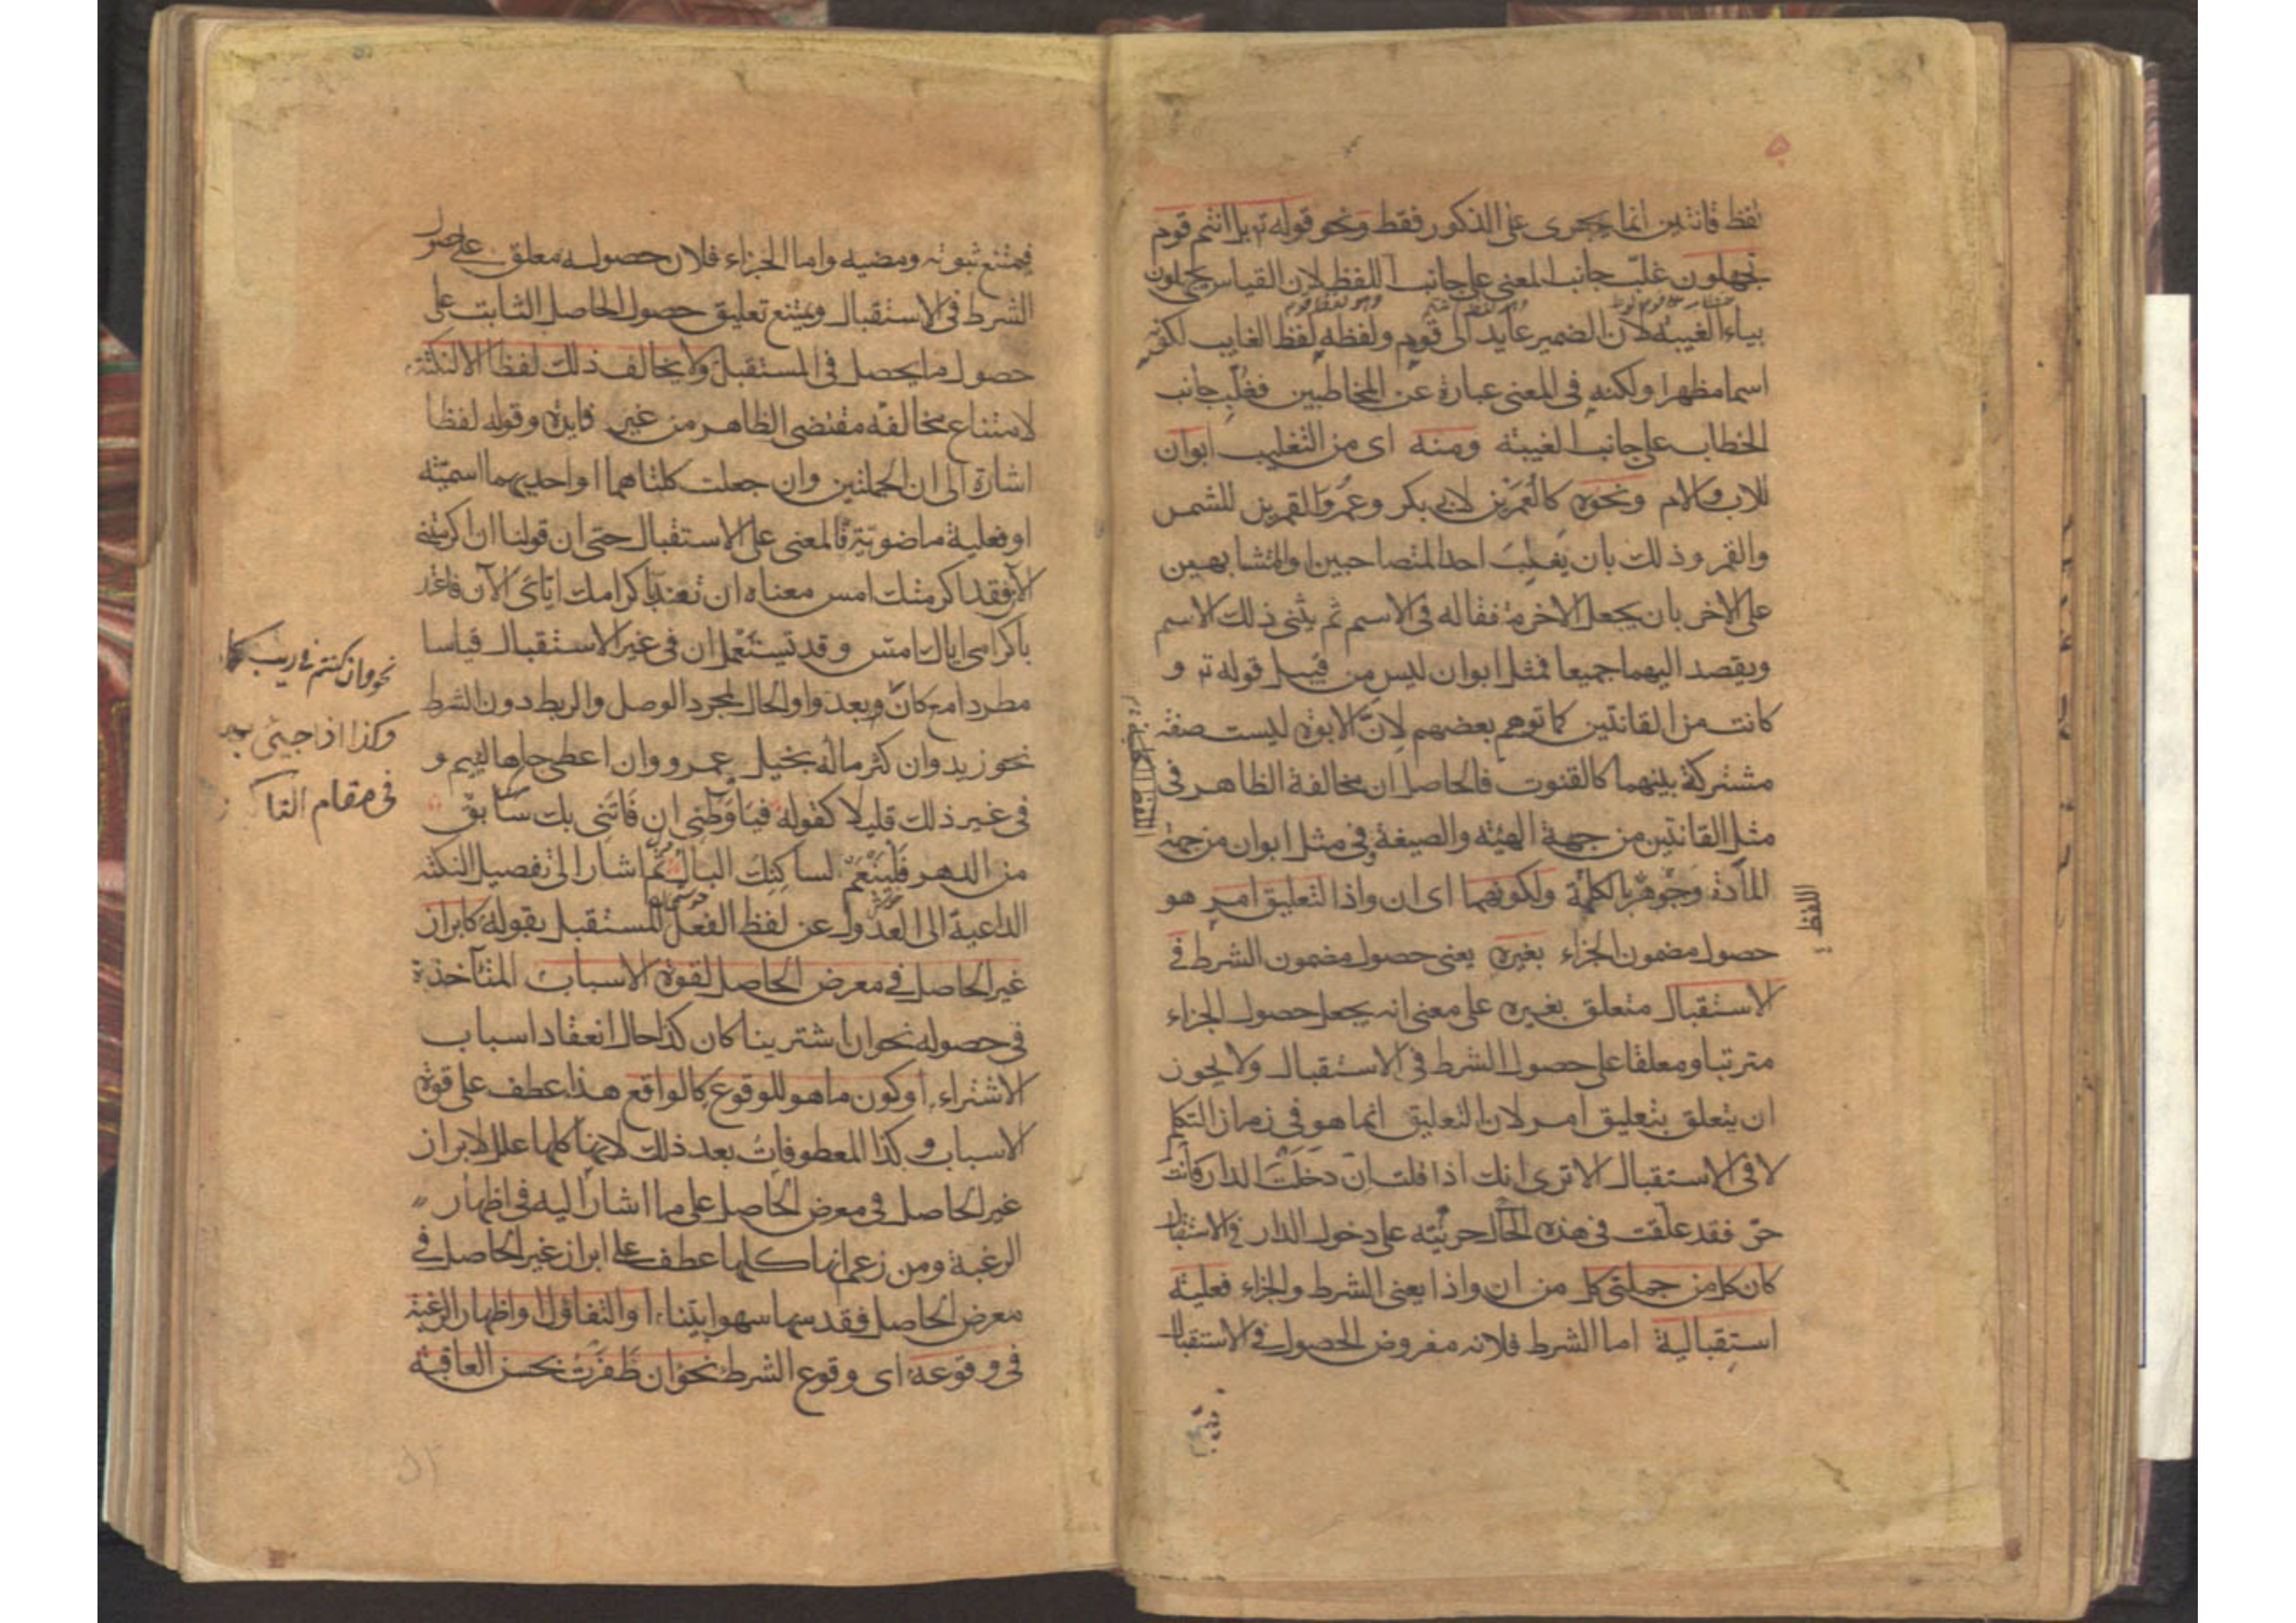 لفظ قانتين انما يجرى على الذكور فقط ونحو قوله تع بل انتم قوم
تجهلون غلّب جانب المعنى على جانب اللفظ لان القياس يجهلون
بياء الغيبة لان الضمير عايد الى قوم ولفظه لفظ الغايب لكونه
اسما مظهرا ولكنه فى المعنى عبارة عن المخاطبين فغلب جانب
الخطاب على جانب الغيبة ومنه اى من التغليب ابوان
للاب والام ونحوه كالعمرين لابى بكر وعمر والقمرين للشمس
والقمر وذلك بان يغلب احد المتصاحبين او المتشابهين
على الاخر بان يجعل الاخر متفقا له فى الاسم ثم يثنى ذلك الاسم
ويقصد اليهما جميعا فمثل ابوان ليس من قبيل قوله تع و
كانت من القانتين كما توهم بعضهم لانّ الابوة ليست صفة
مشتركة بينهما كالقنوت فالحاصل ان مخالفة الظاهر فى
مثل القانتين من جهة الهيئة والصيغة وفى مثل ابوان من جهة
المادة وجوهر الكلمة ولكونهما اى ان واذا لتعليق امر هو
حصول مضمون الجزاء بغيره يعنى حصول مضمون الشرط فى
الاستقبال متعلق بغيره على معنى انه يجعل حصول الجزاء
مترتبا ومعلقا على حصول الشرط فى الاستقبال ولا يجوز
ان يتعلق بتعليق امر لان التعليق انما هو فى زمان التكلم
لا فى الاستقبال الا ترى انك اذا قلت ان دخلت الدار فانت
حرّ فقد علّقت فى هذه الحال حريّته على دخول الدار فى الاستقبال
كان كل من جملتى كل من ان واذا يعنى الشرط والجزاء فعلية
استقبالية اما الشرط فلانه مفروض الحصول فى الاستقبال
اللفظ
فيمتنع ثبوته ومضيه واما الجزاء فلان حصوله معلق على حصول
الشرط فى الاستقبال ويمتنع تعليق حصول الحاصل الثابت على
حصول ما يحصل فى المستقبل ولا يخالف ذلك لفظا الا لنكتة
لامتناع مخالفة مقتضى الظاهر من غير فايدة وقوله لفظا
اشارة الى ان الجملتين وان جعلت كلتاهما او احديهما اسميّة
او فعلية ماضويّة فالمعنى على الاستقبال حتى ان قولنا ان اكرمتنى
الآن فقد اكرمتك امس معناه ان تعتدّ باكرامك اياى الآن فاعتد
باكرامى اياك امس وقد تستعمل ان فى غير الاستقبال قياسا
مطردا مع كان وبعد واو الحال لمجرد الوصل والربط دون الشرط
نحو زيد وان كثر ماله بخيل وعمرو وان اعطى جاها لئيم و
فى غير ذلك قليلا كقوله فيا وطنى ان فاتنى بك سابق
من الدهر فلينعم لساكنك البال ثم اشار الى تفصيل النكتة
الداعية الى العدول عن لفظ الفعل المستقبل بقوله كابراز
غير الحاصل فى معرض الحاصل لقوة الاسباب المتآخذة
فى حصوله نحو ان اشترينا كان كذا حال انعقاد اسباب
الاشتراء او كون ما هو للوقوع كالواقع هذا عطف على قوة
الاسباب وكذا المعطوفات بعد ذلك لانها كلها علل لابراز
غير الحاصل فى معرض الحاصل على ما اشار اليه فى اظهار
الرغبة ومن زعم انها كلها عطف على ابراز غير الحاصل فى
معرض الحاصل فقد سها سهوا بيّنا او التفاؤل او اظهار الرغبة
فى وقوعه اى وقوع الشرط نحو ان ظفرت بحسن العاقبة
نحو وان كنتم فى ريب
وكذا اذا جيئ
فى مقام التا